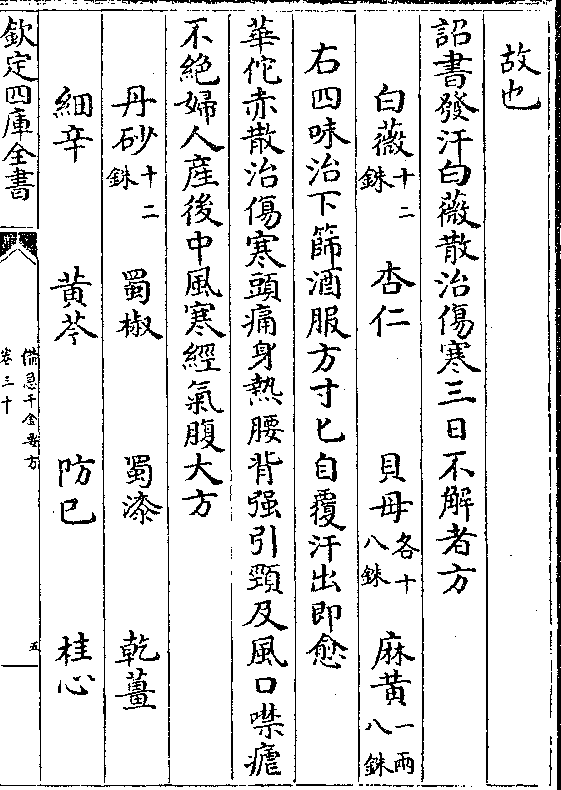 故也
詔書發汗白薇散治傷寒三日不解者方
白薇十二銖 杏仁 貝母各十八銖 麻黄一兩八銖
右四味治下篩酒服方寸匕自覆汗出即愈
華佗赤散治傷寒頭痛身熱腰背强引頸及風口噤瘧
不絶婦人産後中風寒經氣腹大方
丹砂十二銖 蜀椒 蜀漆 乾薑
細辛 黄芩 防已 桂心
欽定四庫全書
備急千金要方
卷三十
五